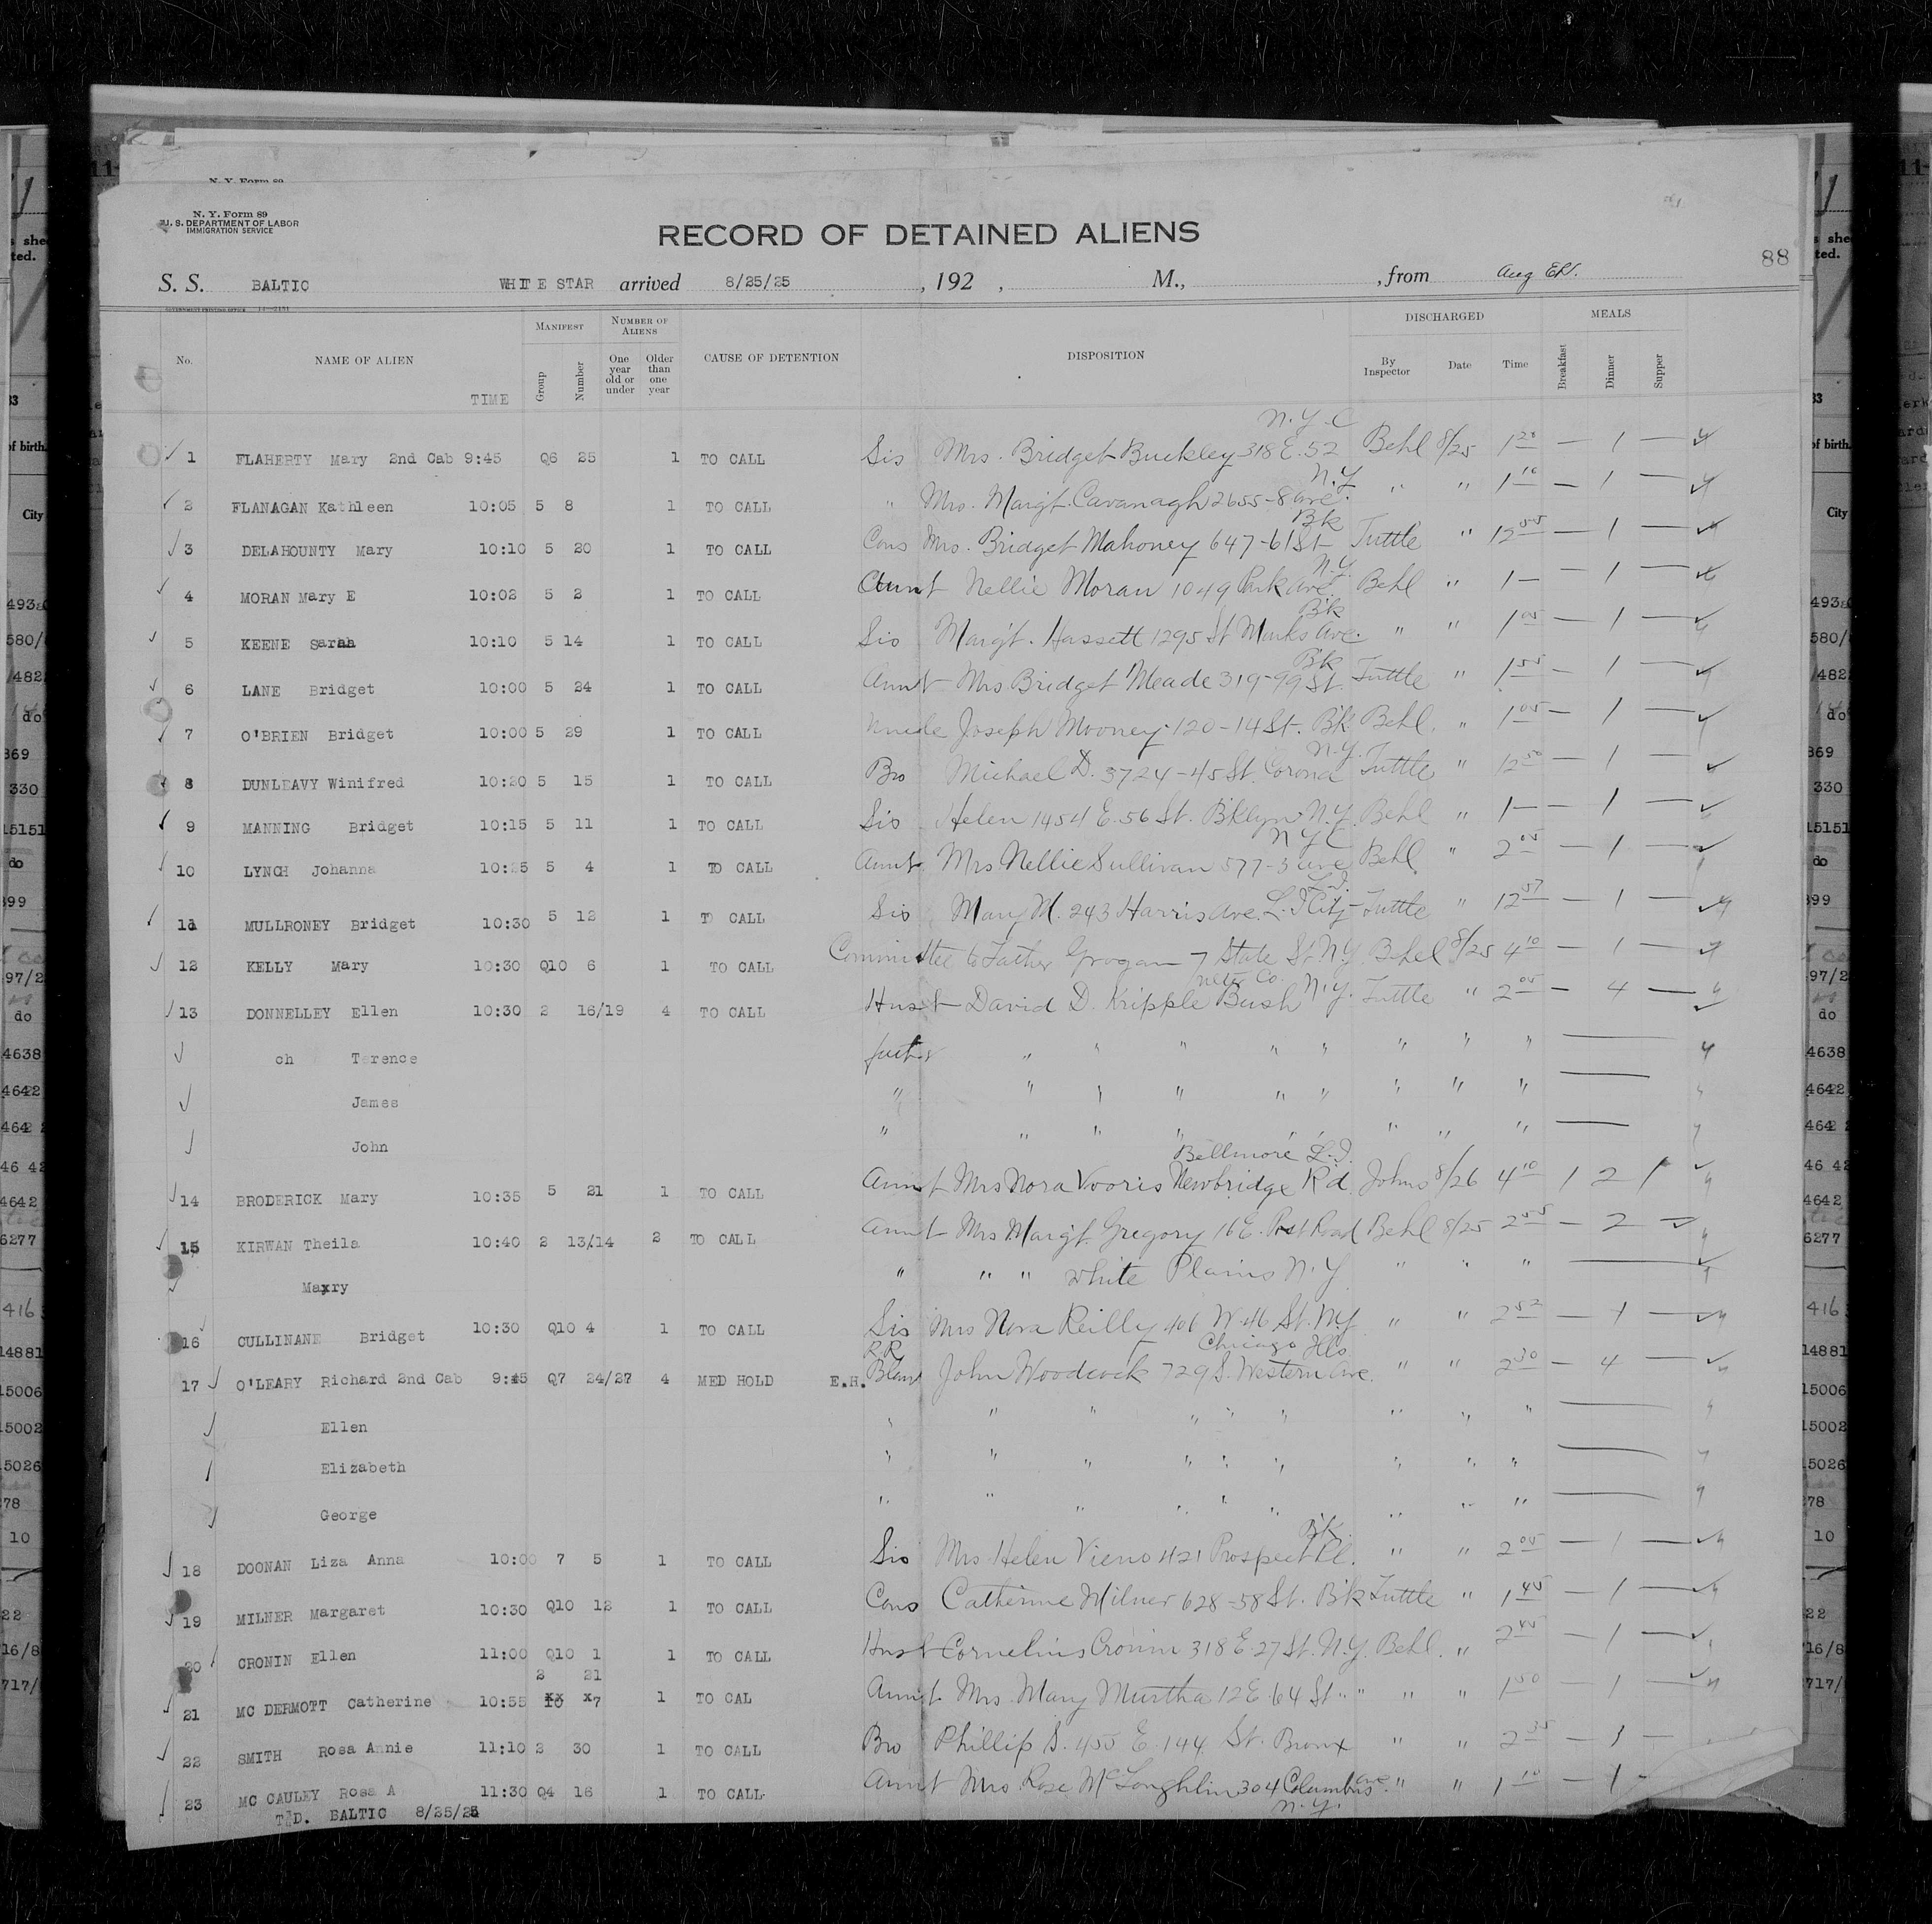 N. Y. Form 89
U. S. DEPARTMENT OF LABOR
IMMIGRATION SERVICE
RECORD OF DETAINED ALIENS
88
S. S. BALTIC WHITE STAR arrived 8/25/25, 192 , M., , from
No. NAME OF ALIEN TIME MANIFEST Group Number NUMBER OF ALIENS One year old or under Older than one year CAUSE OF DETENTION DISPOSITION DISCHARGED By Inspector Date Time MEALS Breakfast Dinner Supper
N.Y.C
1 FLAHERTY Mary 2nd Cab 9:45 Q6 25 1 TO CALL Sis Mrs. Bridget Buckley 318 E. 52 Behl 8/25 1 20 — 1 —
N.Y.
2 FLANAGAN Kathleen 10:05 5 8 1 TO CALL " Mrs. Margt. Cavanagh 2655-8 ave. " " 1 10 — 1 —
Bk
3 DELAHOUNTY Mary 10:10 5 20 1 TO CALL Cous Mrs. Bridget Mahoney 647-61 St Tuttle " 12 55 — 1 —
N.Y.
4 MORAN Mary E 10:02 5 2 1 TO CALL Aunt Nellie Moran 1049 Park Ave. Behl " 1 — — 1 —
Bk
5 KEENE Sarah 10:10 5 14 1 TO CALL Sis Margt. Hassett 1295 St Marks Ave. " " 1 05 — 1 —
Bk
6 LANE Bridget 10:00 5 24 1 TO CALL Aunt Mrs Bridget Meade 319-99 St. Tuttle " 1 55 — 1 —
7 O'BRIEN Bridget 10:00 5 29 1 TO CALL Uncle Joseph Mooney 120-14 St. Bk Behl. " 1 05 — 1 —
N.Y.
8 DUNLEAVY Winifred 10:20 5 15 1 TO CALL Bro Michael D. 3724-45 St. Corona Tuttle " 12 50 — 1 —
9 MANNING Bridget 10:15 5 11 1 TO CALL Sis Helen 1454 E. 56 St. Bklyn N.Y. Behl " 1 — — 1 —
N Y C
10 LYNCH Johanna 10:25 5 4 1 TO CALL Aunt Mrs Nellie Sullivan 577-3 ave Behl " 2 05 — 1 —
11 MULLRONEY Bridget 10:30 5 12 1 TO CALL Sis Mary M. 243 Harris Ave. L. I City Tuttle " 12 57 — 1 —
12 KELLY Mary 10:30 Q10 6 1 TO CALL Committee to Father Grogan 7 State St. N.Y Behl 8/25 4 10 — 1 —
Ulter Co.
13 DONNELLEY Ellen 10:30 2 16/19 4 TO CALL Husb David D. Kripple Bush N.Y. Tuttle " 2 05 — 4 —
ch Terence father " " " " " " " "
James " " " " " " " " "
John " " " " " " " " "
Bellmore L.I.
14 BRODERICK Mary 10:35 5 21 1 TO CALL Aunt Mrs Nora Vooris Newbridge Rd. Johns 8/26 4 10 1 2 1
15 KIRWAN Theila 10:40 2 13/14 2 TO CALL Aunt Mrs Margt. Gregory 16 E. Post Road Behl 8/25 2 55 — 2 —
Maxry " " " White Plains N.Y " " "
16 CULLINANE Bridget 10:30 Q10 4 1 TO CALL Sis Mrs Nora Reilly 406 W 46 St. N.Y " " 2 52 — 1 —
R R Chicago Ills
17 O'LEARY Richard 2nd Cab 9:45 Q7 24/27 4 MED HOLD E.H. John Woodcock 729 S. Western Ave. " " 2 30 — 4 —
Ellen " " " " " " " " "
Elizabeth " " " " " " " " "
George " " " " " " " " "
Bk.
18 DOONAN Liza Anna 10:00 7 5 1 TO CALL Sis Mrs Helen Vieno 421 Prospect Pl. " " 2 05 — 1 —
19 MILNER Margaret 10:30 Q10 12 1 TO CALL Cous Catherine Milner 628-58 St. Bk Tuttle " 1 45 — 1 —
20 CRONIN Ellen 11:00 Q10 1 1 TO CALL Husb Cornelius Cronin 318 E 27 St. N.Y. Behl. " 2 45 — 1 —
2 21
21 MC DERMOTT Catherine 10:55 1 TO CAL Aunt Mrs. Mary Murtha 12 E. 64 St " " " " 1 50 — 1 —
22 SMITH Rosa Annie 11:10 2 30 1 TO CALL Bro Phillip S. 455 E. 144 St. Bronx " " 2 35 — 1 —
23 MC CAULEY Rosa A 11:30 Q4 16 1 TO CALL Aunt Mrs. Rose McLoughlin 304 Columbus ave. " " 1 10 — 1 -
N.Y.
T&D. BALTIC 8/25/25